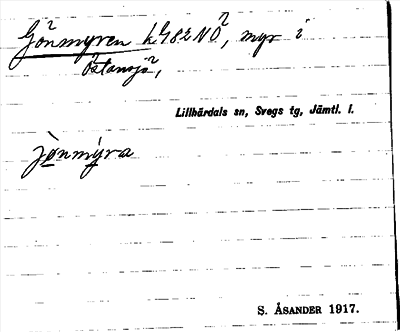 Gönmyren k982NÖ, myr i
Östansjö,
Lillhärdals sn, Svegs tg, Jämtl. l.
jönmýra
S. ÅSANDER 1917.